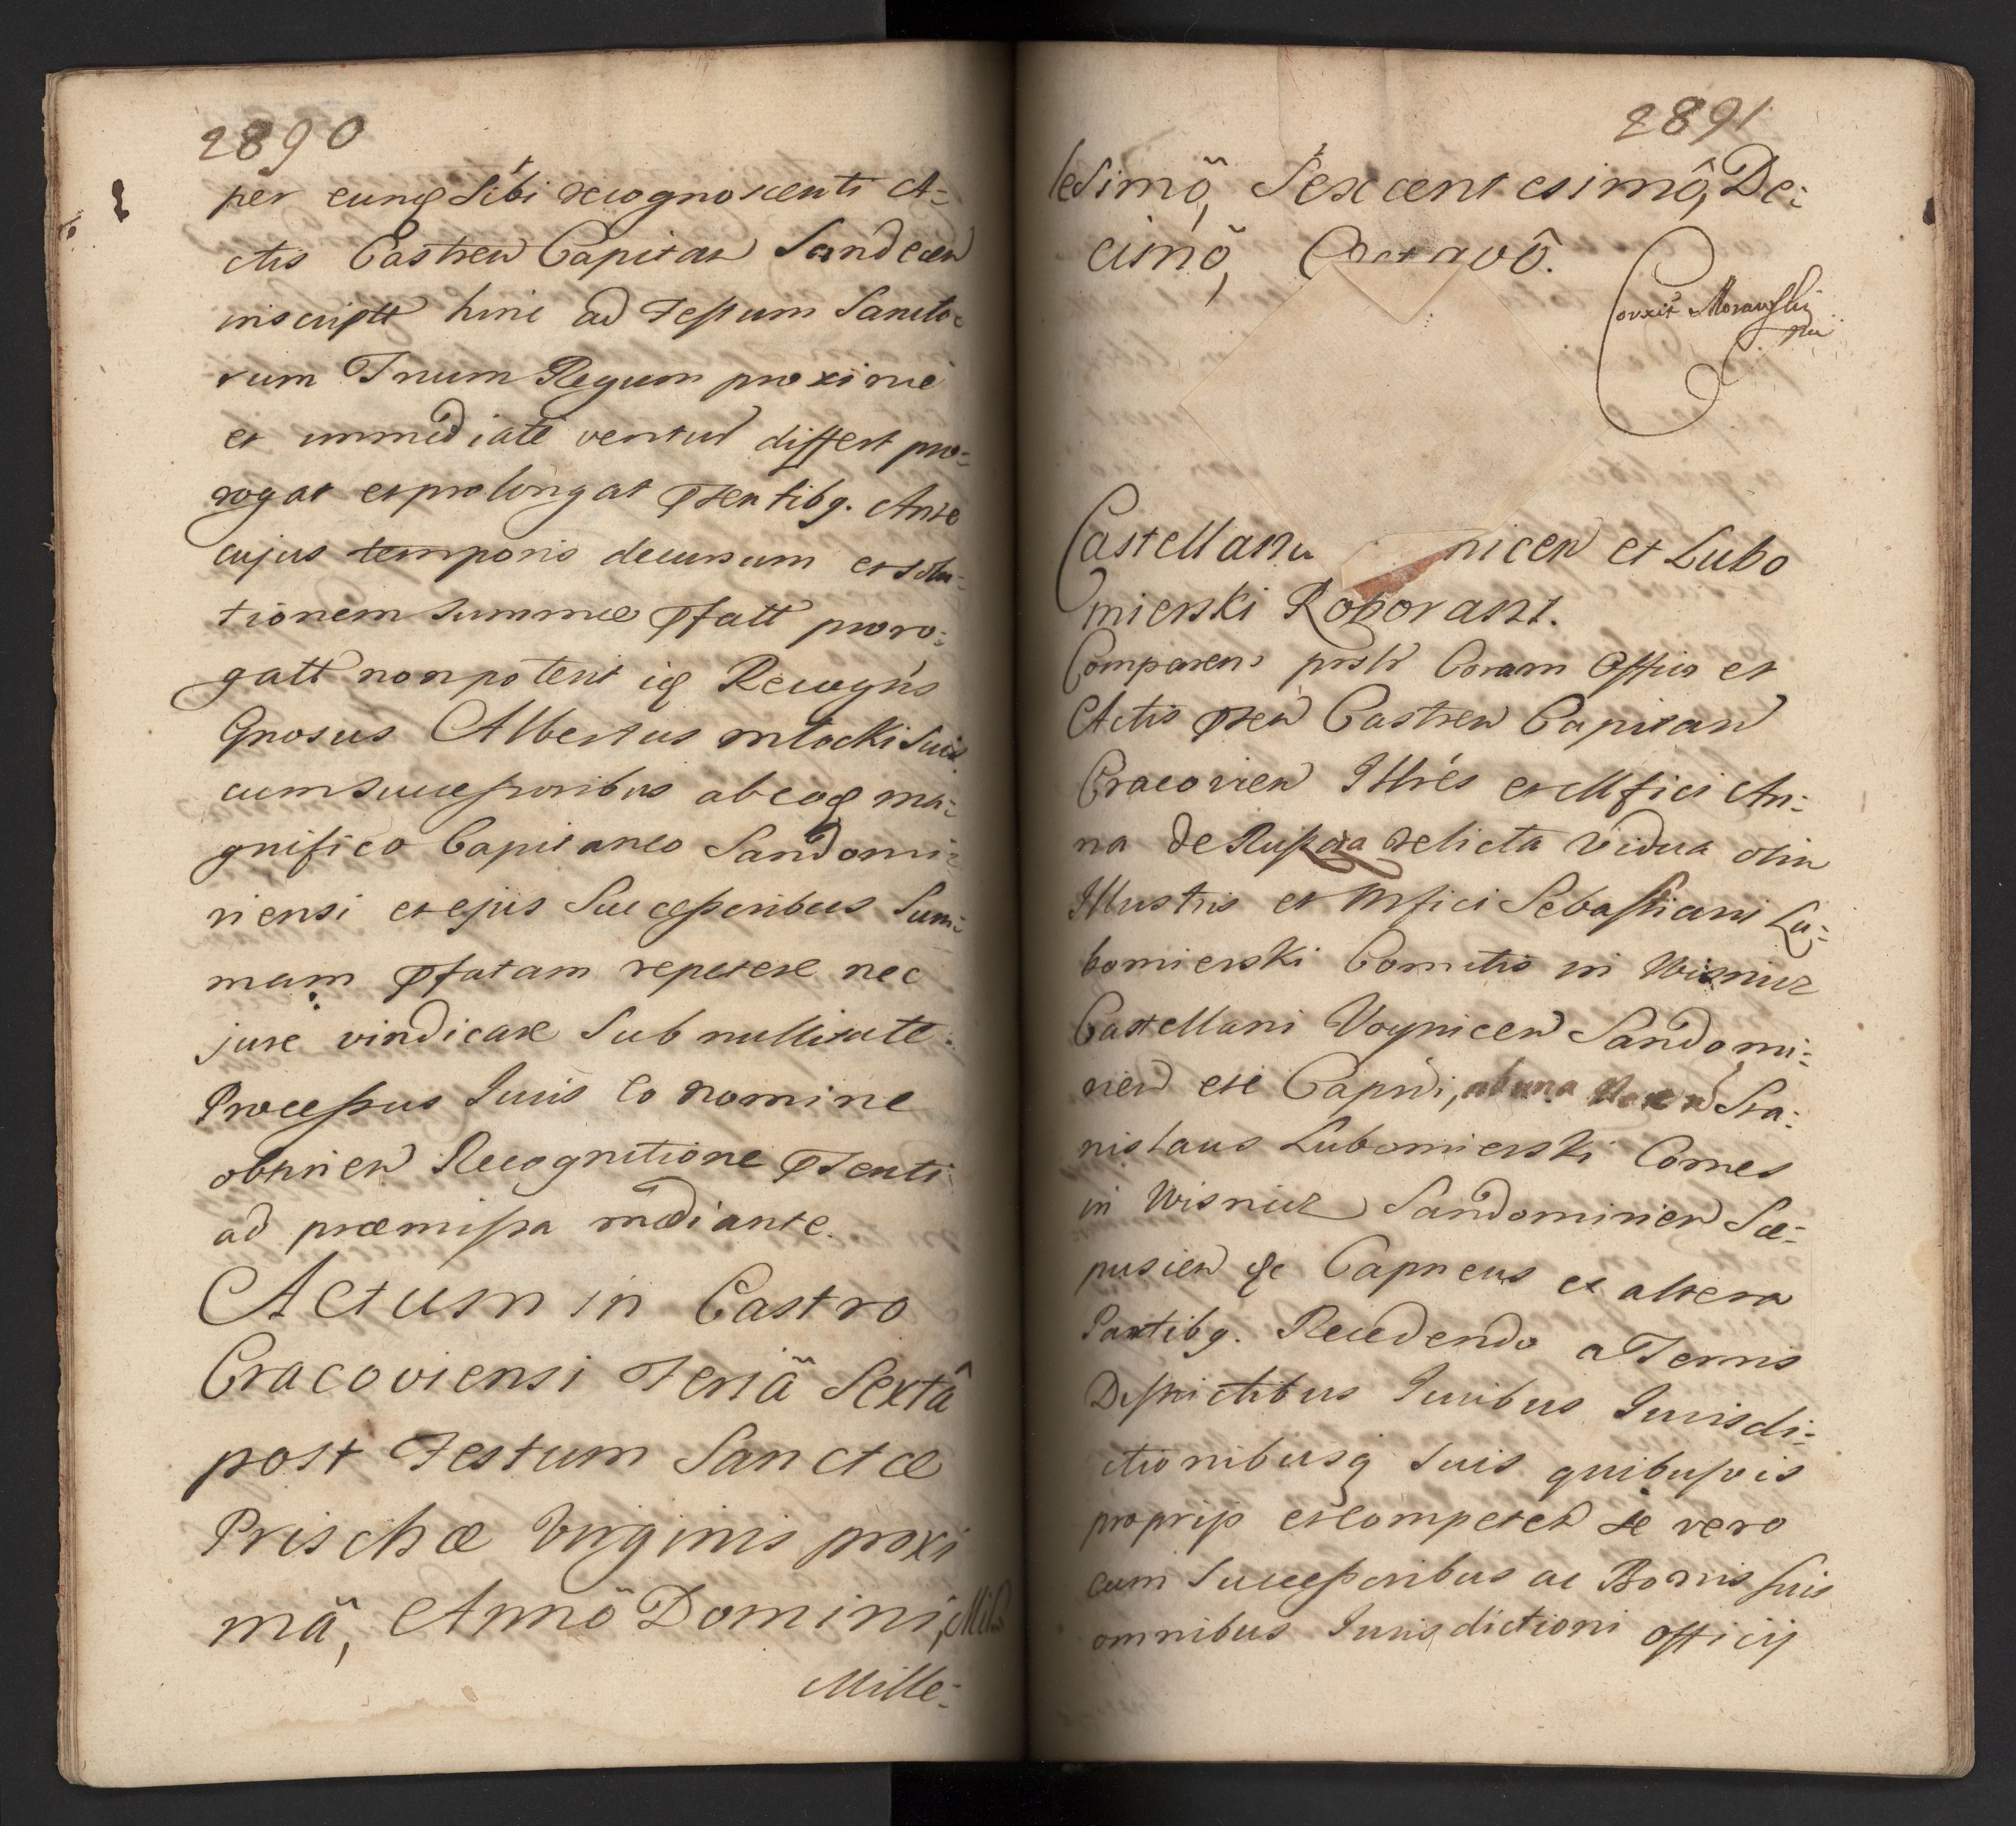 2890
per eunq Sibi recognoscenti A-
ctis Castren Capitan Sandecen
inscriptt hinc ad Festum Sancto-
rum Trium Regum proximè
et immediatè ventur differt pro-
rogat et prolongat pntibg. Ante
cujus temporis decursum et solu-
tionem summæ pfatt proro-
gatt non poterit iq Recogns
Gnosus Albertus Młocki suis
cum successoribus ab eoq ma-
gnifico Capitaneo Sandomi-
riensi et ejus Successoribus Sum-
mam pfatam repetere nec
jure vindicare Sub nullitate
Processus Juris eo nomine
obtinen Recognitione pnti
ad præmissa mediante.
Actum in Castro
Cracoviensi Feriâ Sextâ
post Festum Sanctæ
Prischæ Virginis proxi
mâ, Annô Domini,
Mille-
2891
lesimô, Sexcentesimô, De-
cimô, Octavô.
Corxit Moravski
mp
Castellanu nicen et Lubo
mierski Roborant.
Comparens pnslr Coram Officio et
Actis pnten Castren Capitan
Cracovien Illres et Mfici An-
na de relicta Vidua olim
Illustris et Mfici Sebastiani Lu-
bomierski Comitis in Wisnicz
Castellani Voynicen Sandomi-
rien etc Capnei, ab una Sta-
nislaus Lubomierski Comes
in Wisnicz Sandomirien Sce-
pusien etc Capneus et altera
Partibg. Recedendo a Terris
Districtibus Juribus Jurisdi-
ctionibusq suis quibusvis
proprijs et competen se vero
cum Successoribus ac Bonis suis
omnibus Jurisdictioni officij